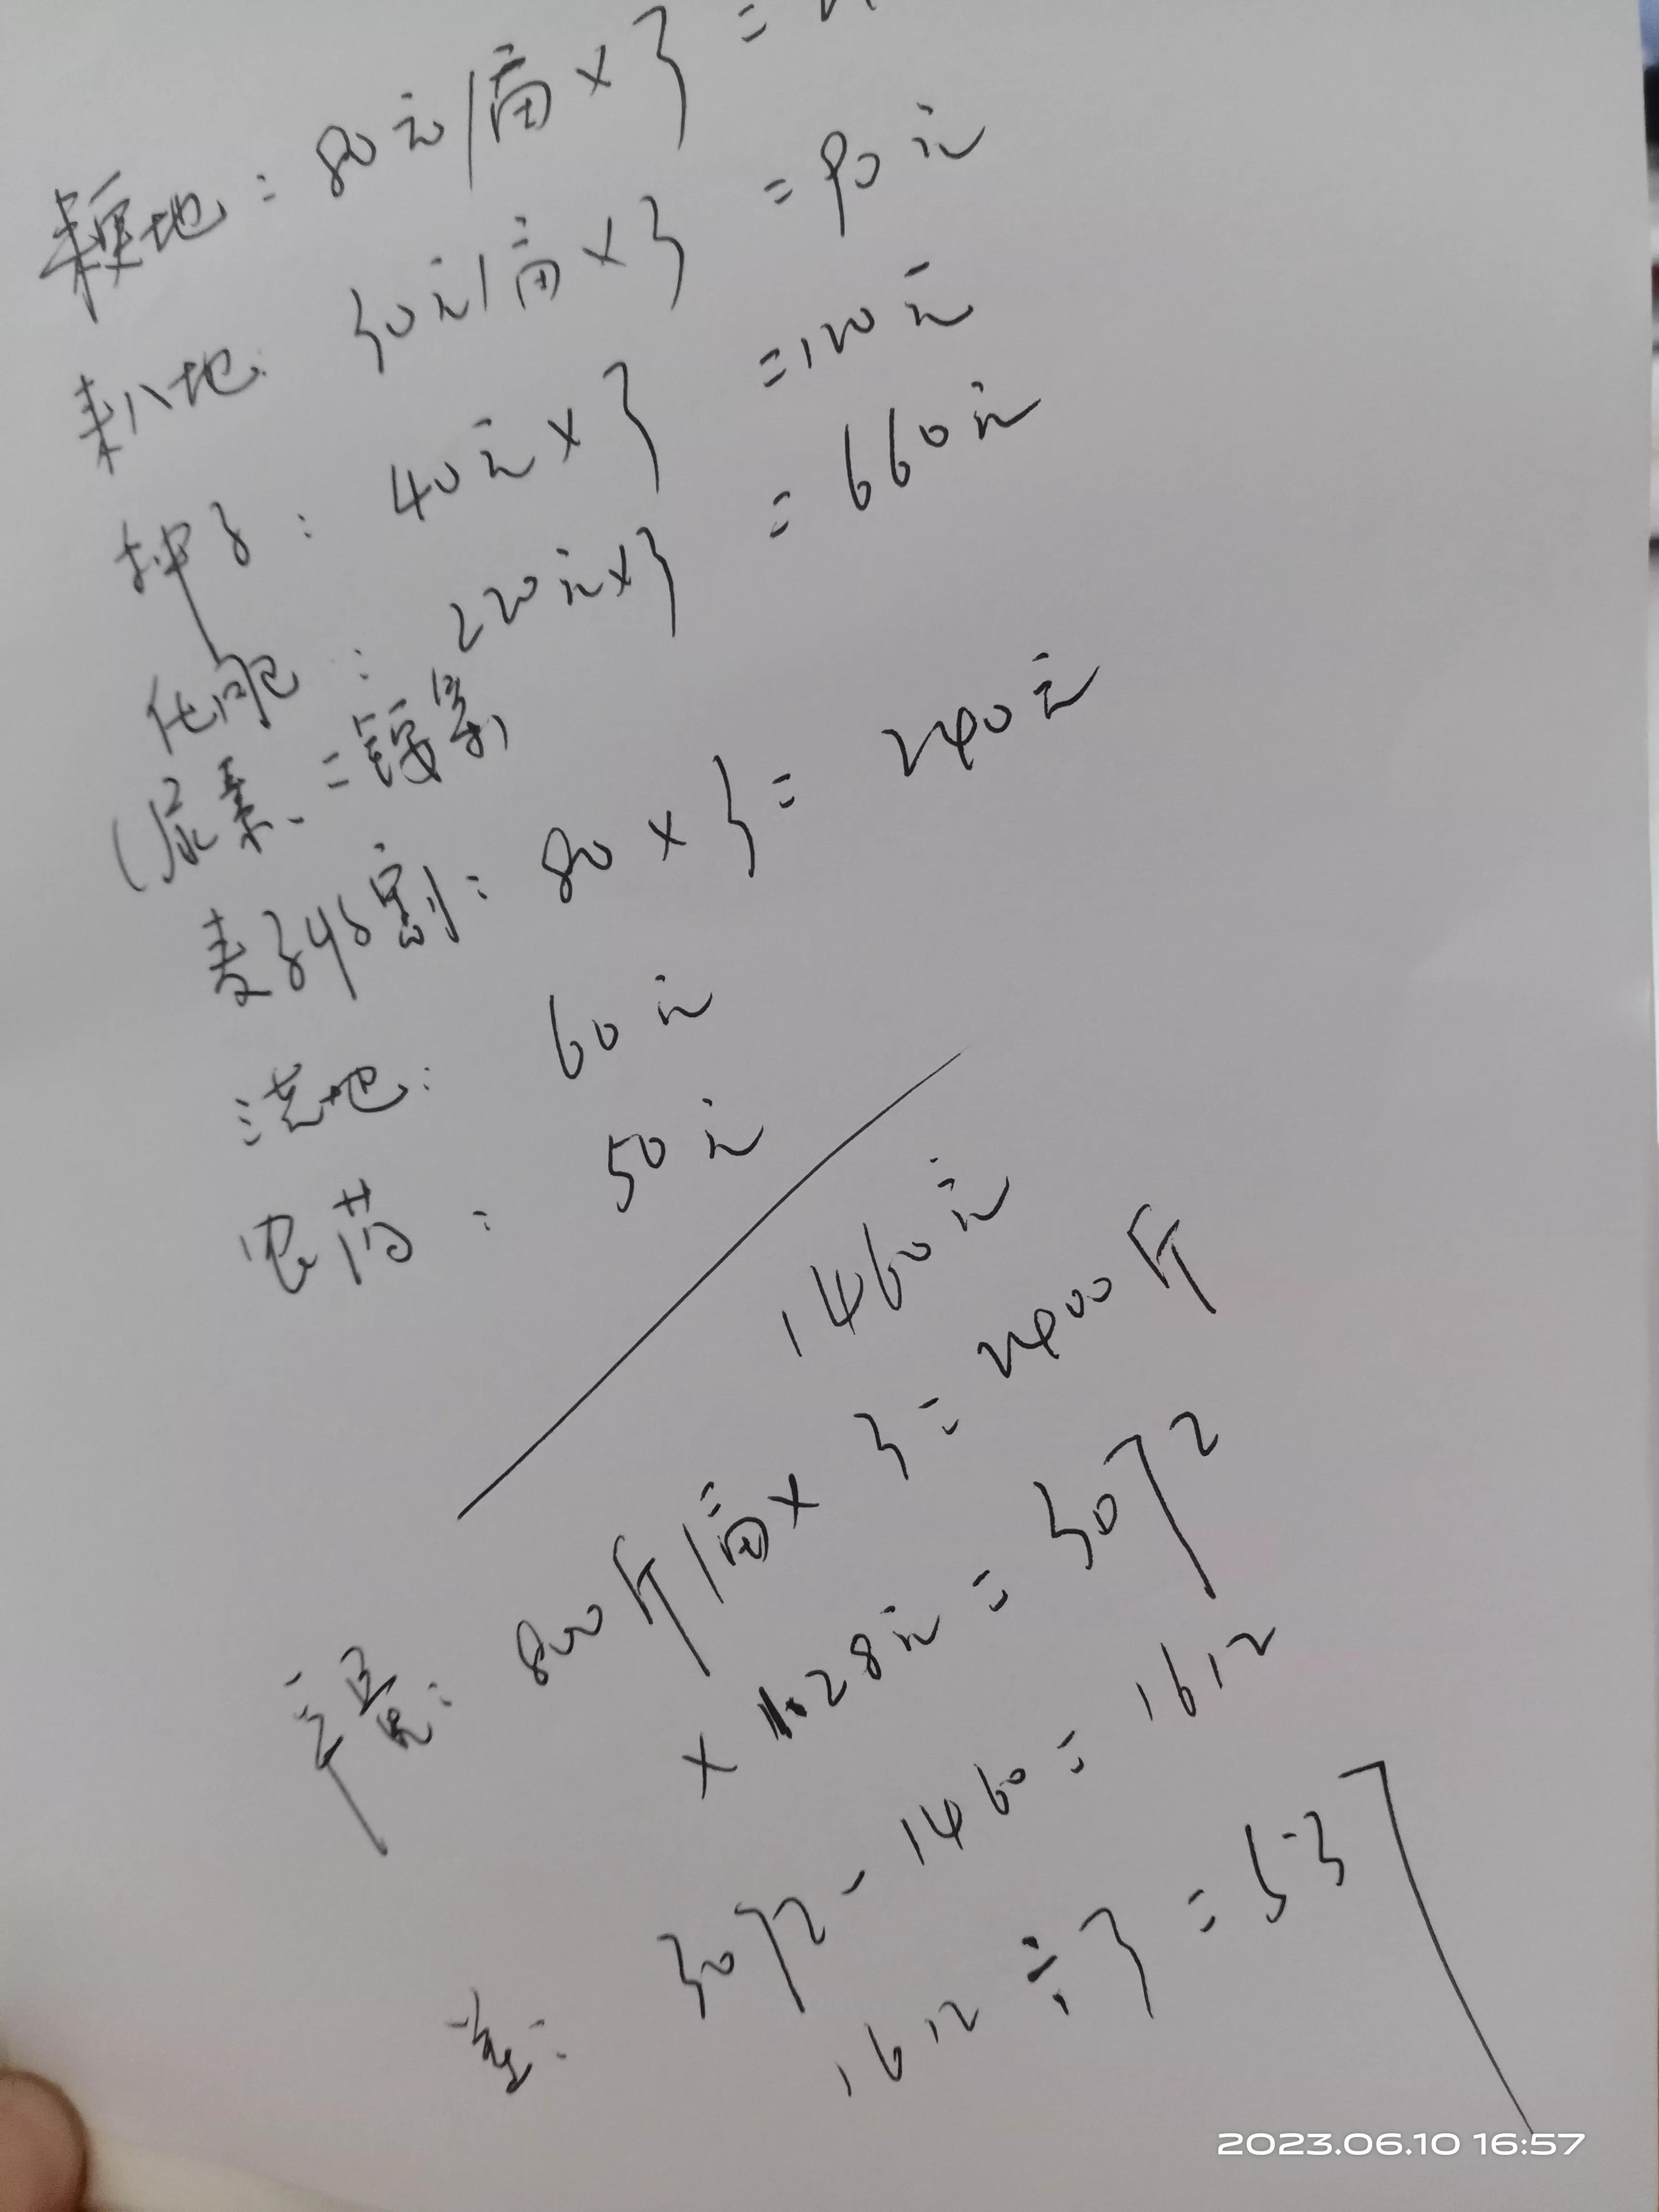 種地：80元/亩×3 =
耙地：30元/亩×3 =90元
种子：40元×3 =120元
化肥：220元×3 =660元
(尿素、二铵等)
麦子收割：80×3= 240元
浇地：60元
农药：50元
1460元
产量：800斤/亩×3=2400斤
×1.28元=3072
差：3072-1460=1612
1612÷3=537
2023.06.10 16:57